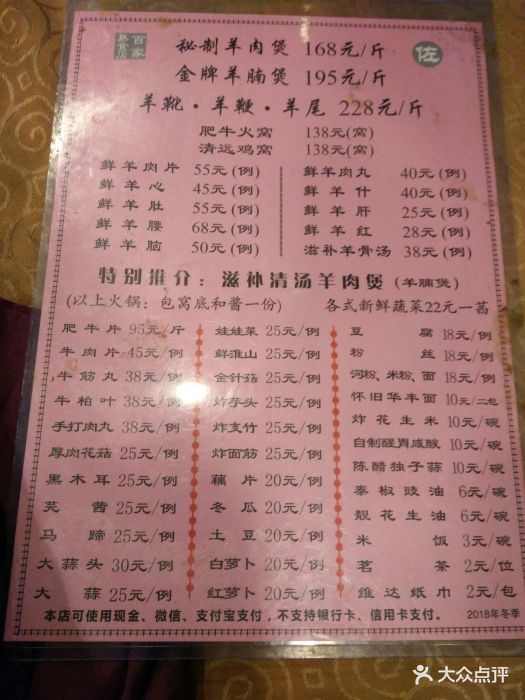 百家
熟食店
佐
秘制羊肉煲 168元/斤
金牌羊腩煲 195元/斤
羊靴·羊鞭·羊尾 228元/斤
肥牛火窝 138元(窝)
清远鸡窝 138元(窝)
鲜羊肉片 55元(例)
鲜羊心 45元(例)
鲜羊肚 55元(例)
鲜羊腰 68元(例)
鲜羊脑 50元(例)
鲜羊肉丸 40元(例)
鲜羊什 40元(例)
鲜羊肝 25元(例)
鲜羊红 28元(例)
滋补羊骨汤 38元(例)
特别推介：滋补清汤羊肉煲(羊腩煲)
(以上火锅：包窝底和酱一份) 各式新鲜蔬菜22元一茜
肥牛片 95元/斤
牛肉片 45元/例
牛筋丸 38元/例
牛柏叶 38元/例
手打肉丸 38元/例
厚肉花菇 25元/例
黑木耳 25元/例
芫茜 25元/例
马蹄 25元/例
大蒜头 30元/例
大蒜 25元/例
娃娃菜 25元/例
鲜淮山 25元/例
金针菇 25元/例
炸芋头 25元/例
炸支竹 25元/例
炸面筋 25元/例
藕片 20元/例
冬瓜 20元/例
土豆 20元/例
白萝卜 20元/例
红萝卜 20元/例
豆腐 18元/例
粉丝 18元/例
河粉、米粉、面 18元/例
怀旧华丰面 10元/二包
炸花生米 10元/碗
自制醒胃咸酸 10元/碗
陈醋独子蒜 10元/碗
泰椒豉油 6元/碗
靓花生油 6元/碗
米饭 3元/碗
茗茶 2元/位
维达纸巾 2元/包
本店可使用现金、微信、支付宝支付，不支持银行卡、信用卡支付。 2018年冬季
大众点评